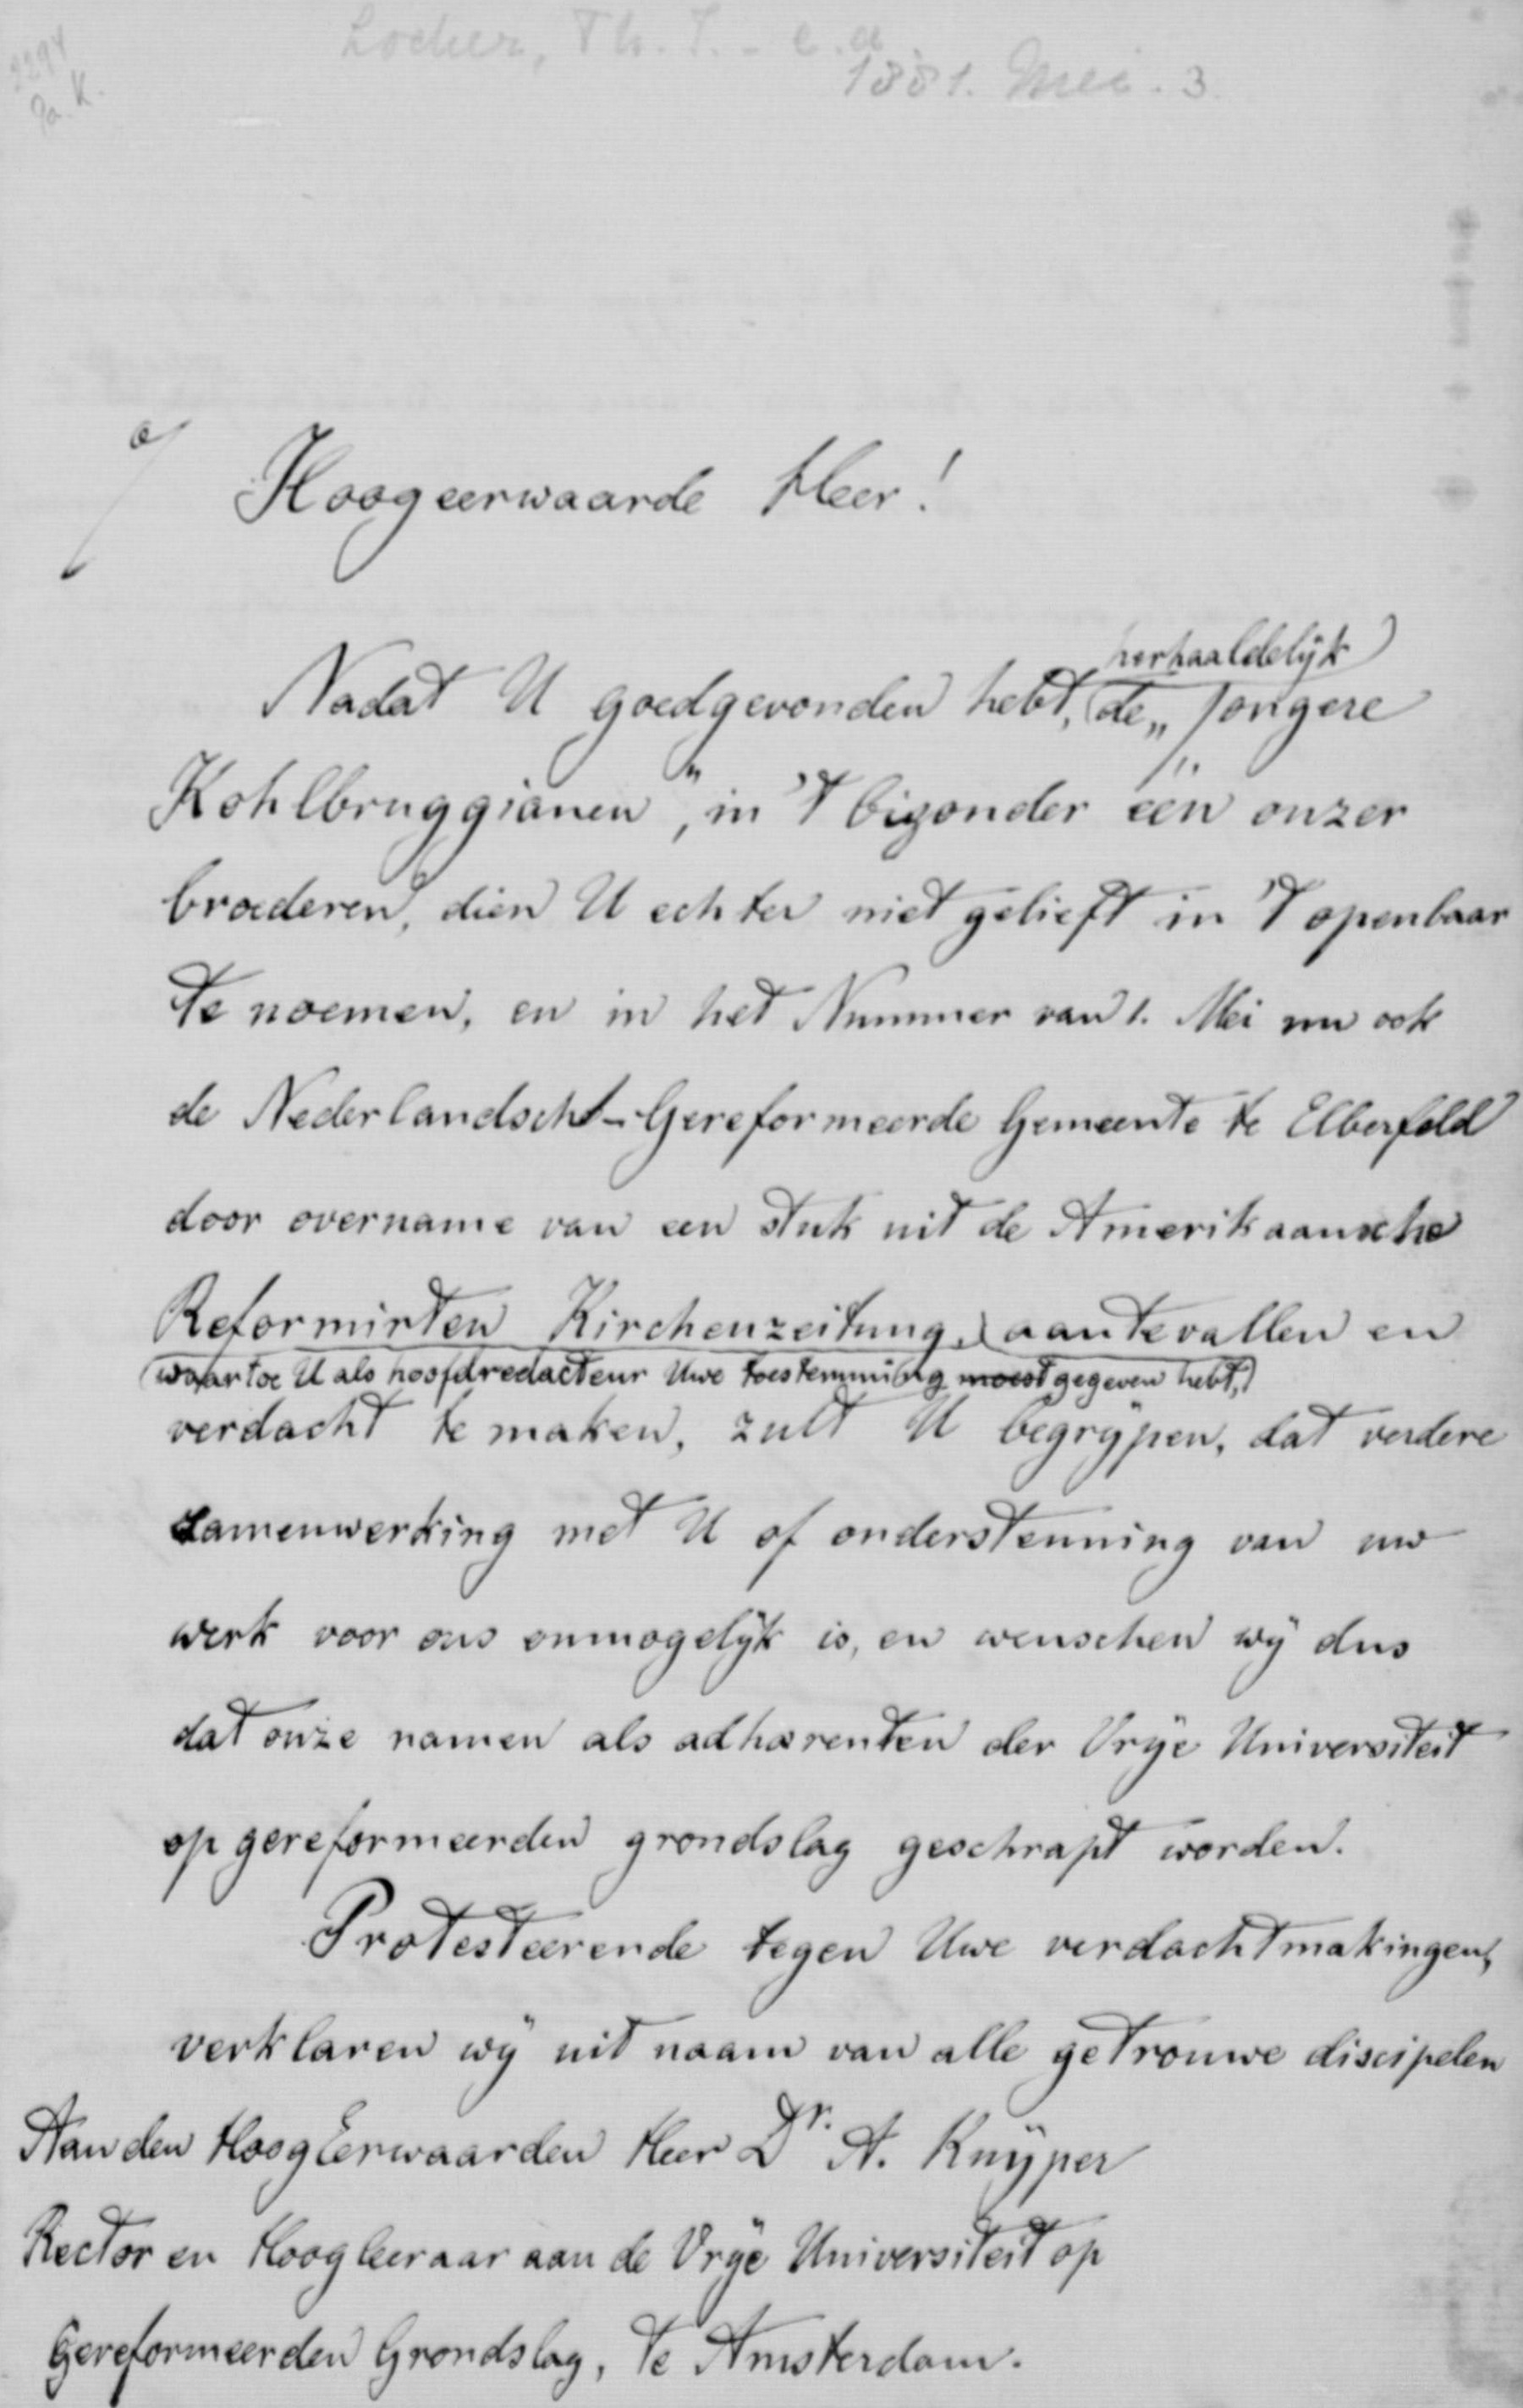 Locher, Th. J. - e.a.
1881. Mei. 3.
Hoogeerwaarde Heer!
herhaaldelijk
Nadat U goedgevonden hebt, de „Jongere
Kohlbruggianen”, in 't bizonder één onzer
broederen, dien U echter niet gelieft in 't openbaar
te noemen, en in het Nummer van 1. Mei nu ook
de Nederlandsch-Gereformeerde Gemeente te Elberfeld
door overname van een stuk uit de Amerikaansche
Reformirten Kirchenzeitung, aantevallen en
(waartoe U als hoofdredacteur Uwe toestemming moest gegeven hebt,)
verdacht te maken, zult U begrijpen, dat verdere
samenwerking met U of ondersteuning van uw
werk voor ons onmogelijk is, en wenschen wij dus
dat onze namen als adhaerenten der Vrije Universiteit
op gereformeerden grondslag geschrapt worden.
Protesteerende tegen Uwe verdachtmakingen,
verklaren wij uit naam van alle getrouwe discipelen
Aan den HoogEerwaarden Heer Dr. A. Kuijper
Rector en Hoogleeraar aan de Vrije Universiteit op
Gereformeerden Grondslag, te Amsterdam.